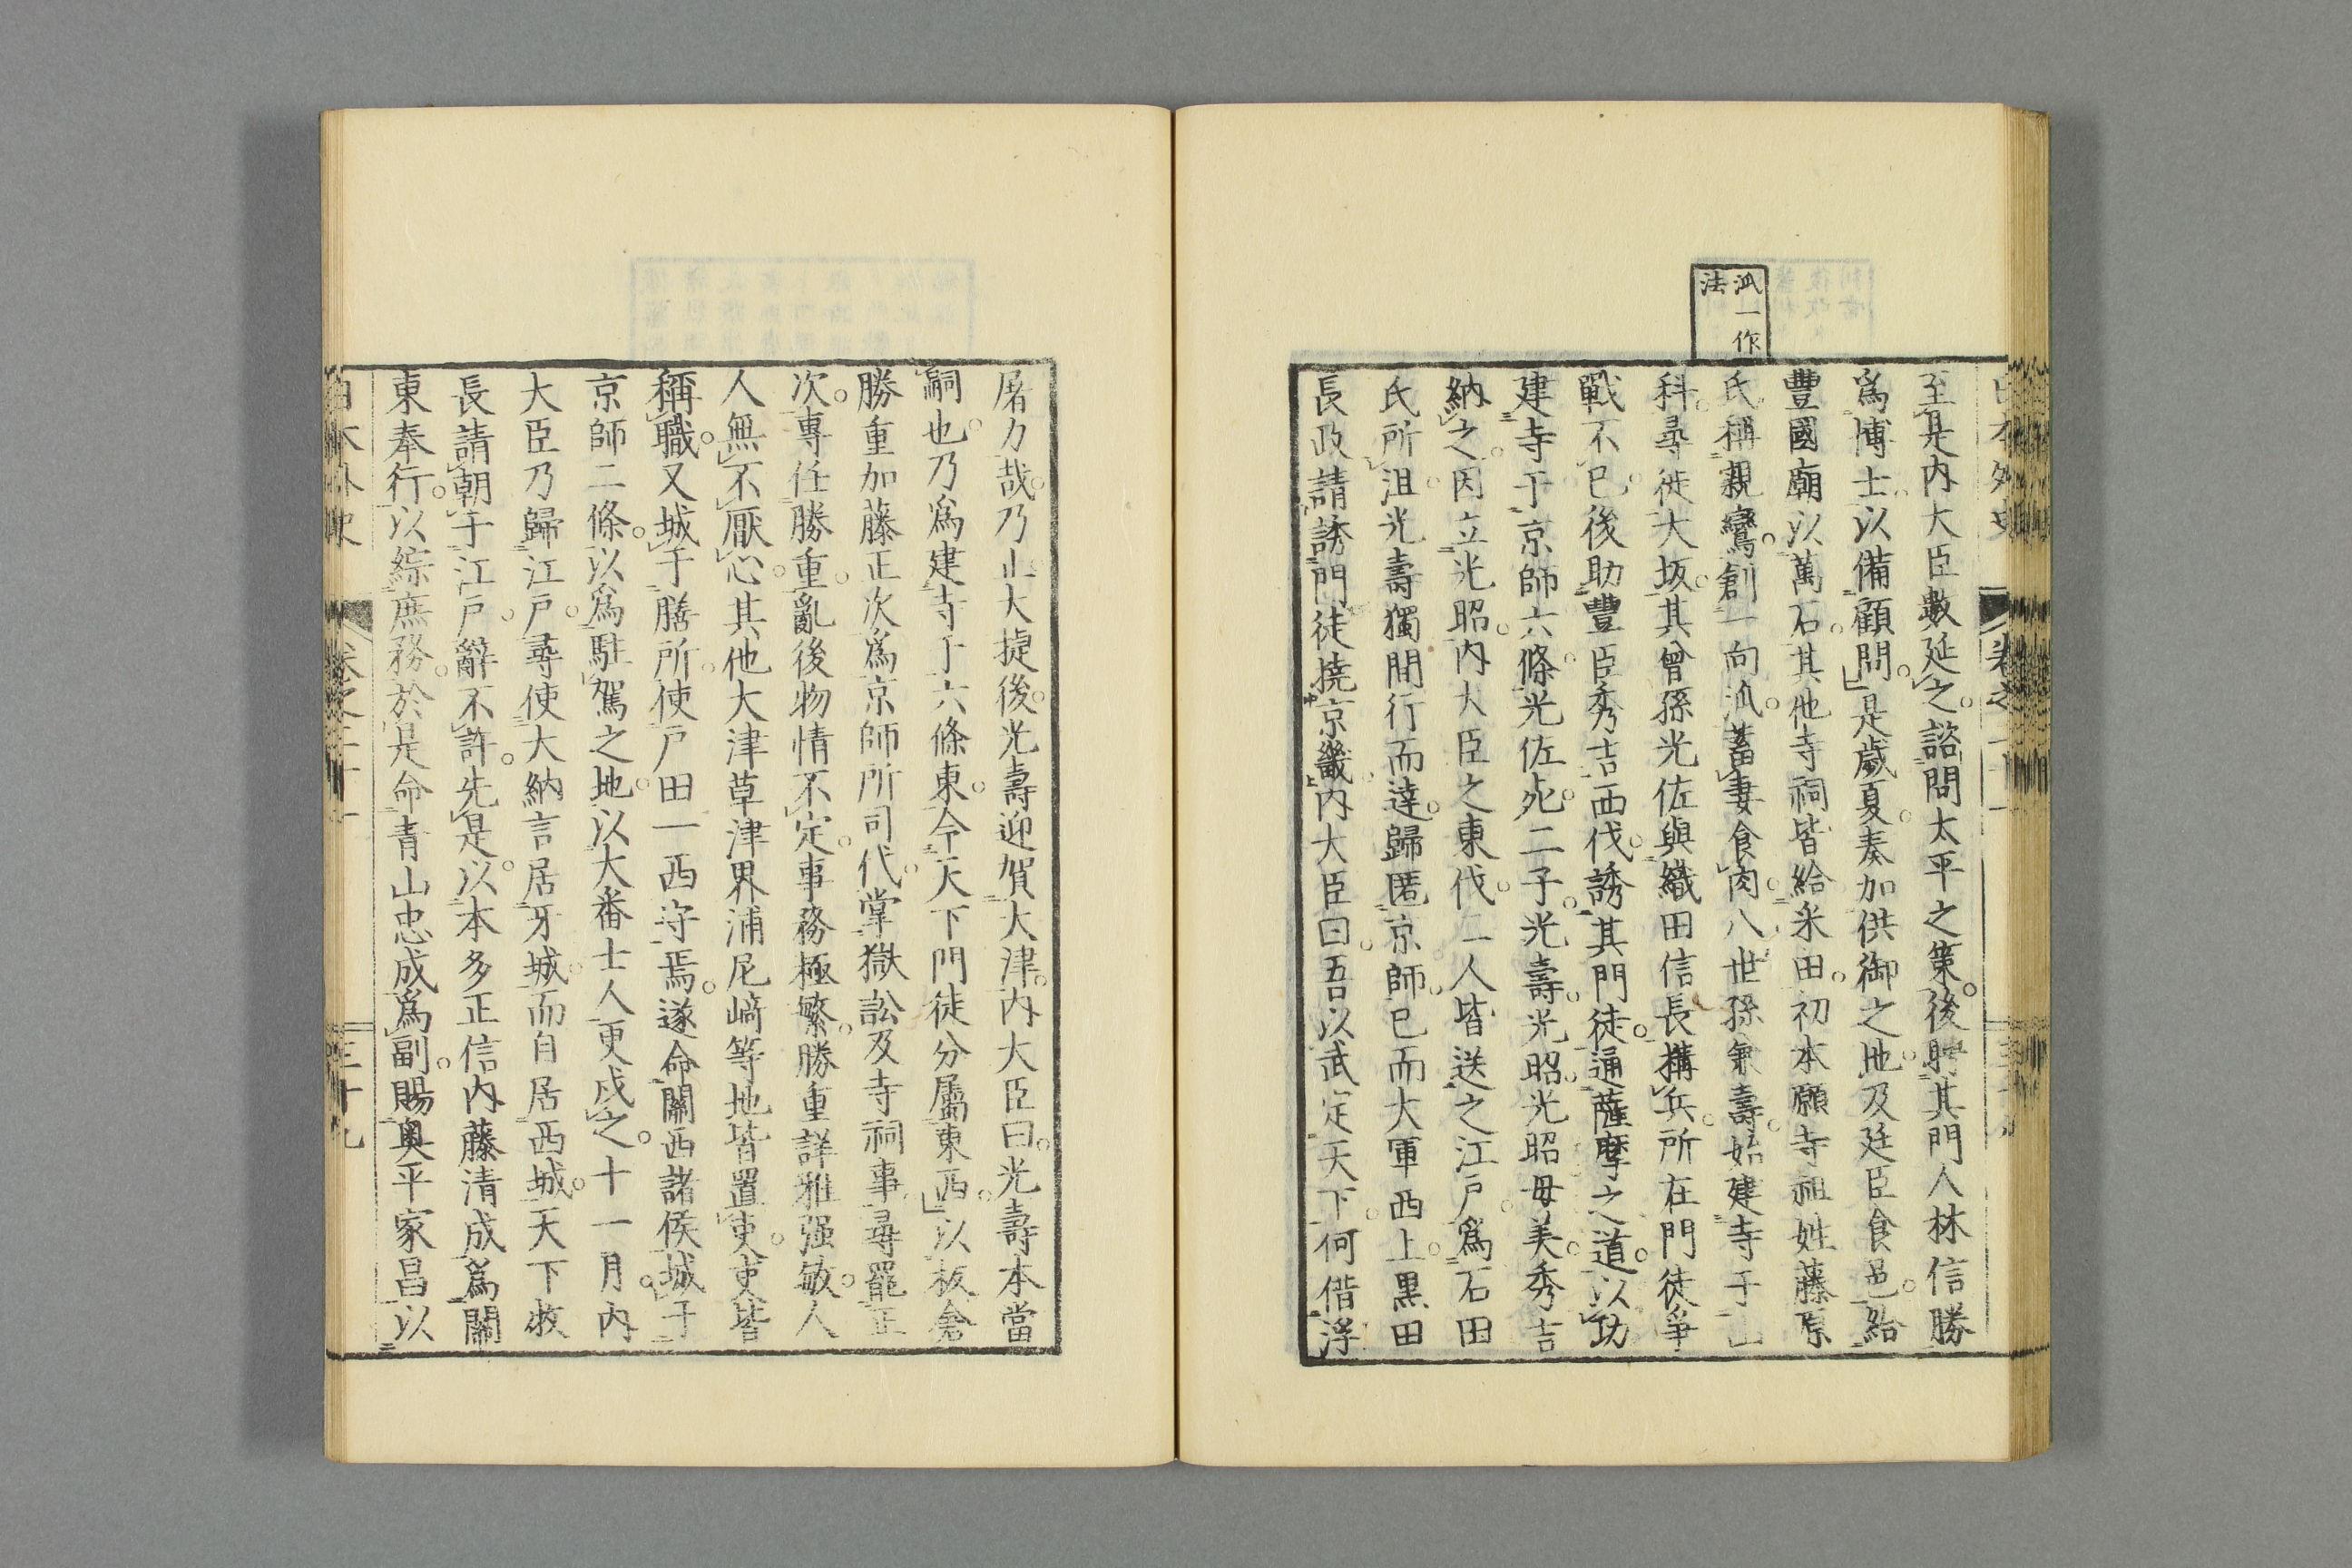 至是内大臣數延之諮問太平之策後聘其門人林信勝
爲博士以備顧問是歲夏奏加供御之地及廷臣食邑給
豐國廟以萬石其他寺祠皆給釆田初本願寺祖姓藤原
氏稱親鸞創一向㳒蓄妻食肉八世孫兼壽始建寺于山
科尋徙大坂其曾孫光佐與織田信長搆兵所在門徒爭
戰不已後助豐臣秀吉西伐誘其門徒通薩摩之道以功
建寺于京師六條光佐死二子光壽光昭光昭母美秀吉
納之因立光昭内大臣之東伐一人皆送之江戸爲石田
氏所沮光壽獨間行而達歸匿京師已而大軍西上黒田
長政請誘門徒撓京畿内大臣曰吾以武定天下何偕浮
㳒一作
法
屠力哉乃止大捷後光壽迎賀大津内大臣曰光壽本當
嗣也乃爲建寺于六條東令天下門徒分屬東西以板倉
勝重加藤正次爲京師所司代掌獄訟及寺祠事尋罷正
次專任勝重亂後物情不定事務極繁勝重詳雅强敏人
人無不厭心其他大津草津界浦尼﨑等地皆置吏吏皆
稱職又城于膳所使戸田一西守焉遂命關西諸侯城于
京師二條以爲駐駕之地以大番士人更戍之十一月内
大臣乃歸江戸尋使大納言居牙城而自居西城天下牧
長請朝于江戸辭不許先是以本多正信内藤清成爲關
東奉行以綜庶務於是命青山忠成爲副賜奥平家昌以